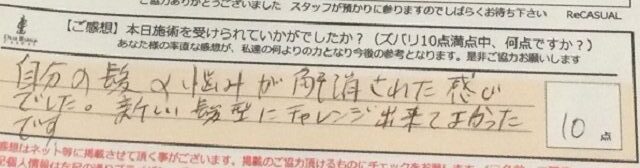 ご協力ありがとうございました スタッフが預かりに参りますのでしばらくお待ち下さい ReCASUAL
【ご感想】本日施術を受けられていかがでしたか?(ズバリ10点満点中、何点ですか?)
あなた様の率直な感想が、私達の何よりの力となり今後の参考となります。是非ご協力お願いします
自分の髪の悩みが解消された感じ
でした。新しい髪型にチャレンジ出来てよかった
です
10点
感想はネット等に掲載させて頂く事がございます。掲載のご協力頂けるものにチェックをお願いします。